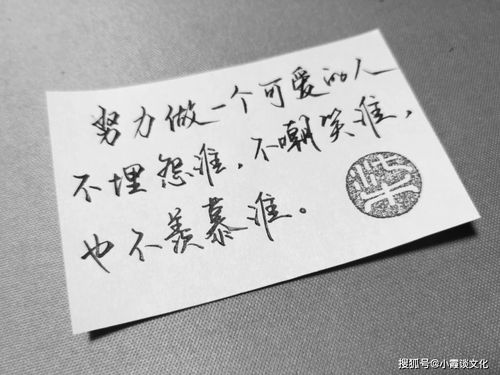 努力做一个可爱的人
不埋怨谁，不嘲笑谁，
也不羡慕谁。
搜狐号@小霞谈文化